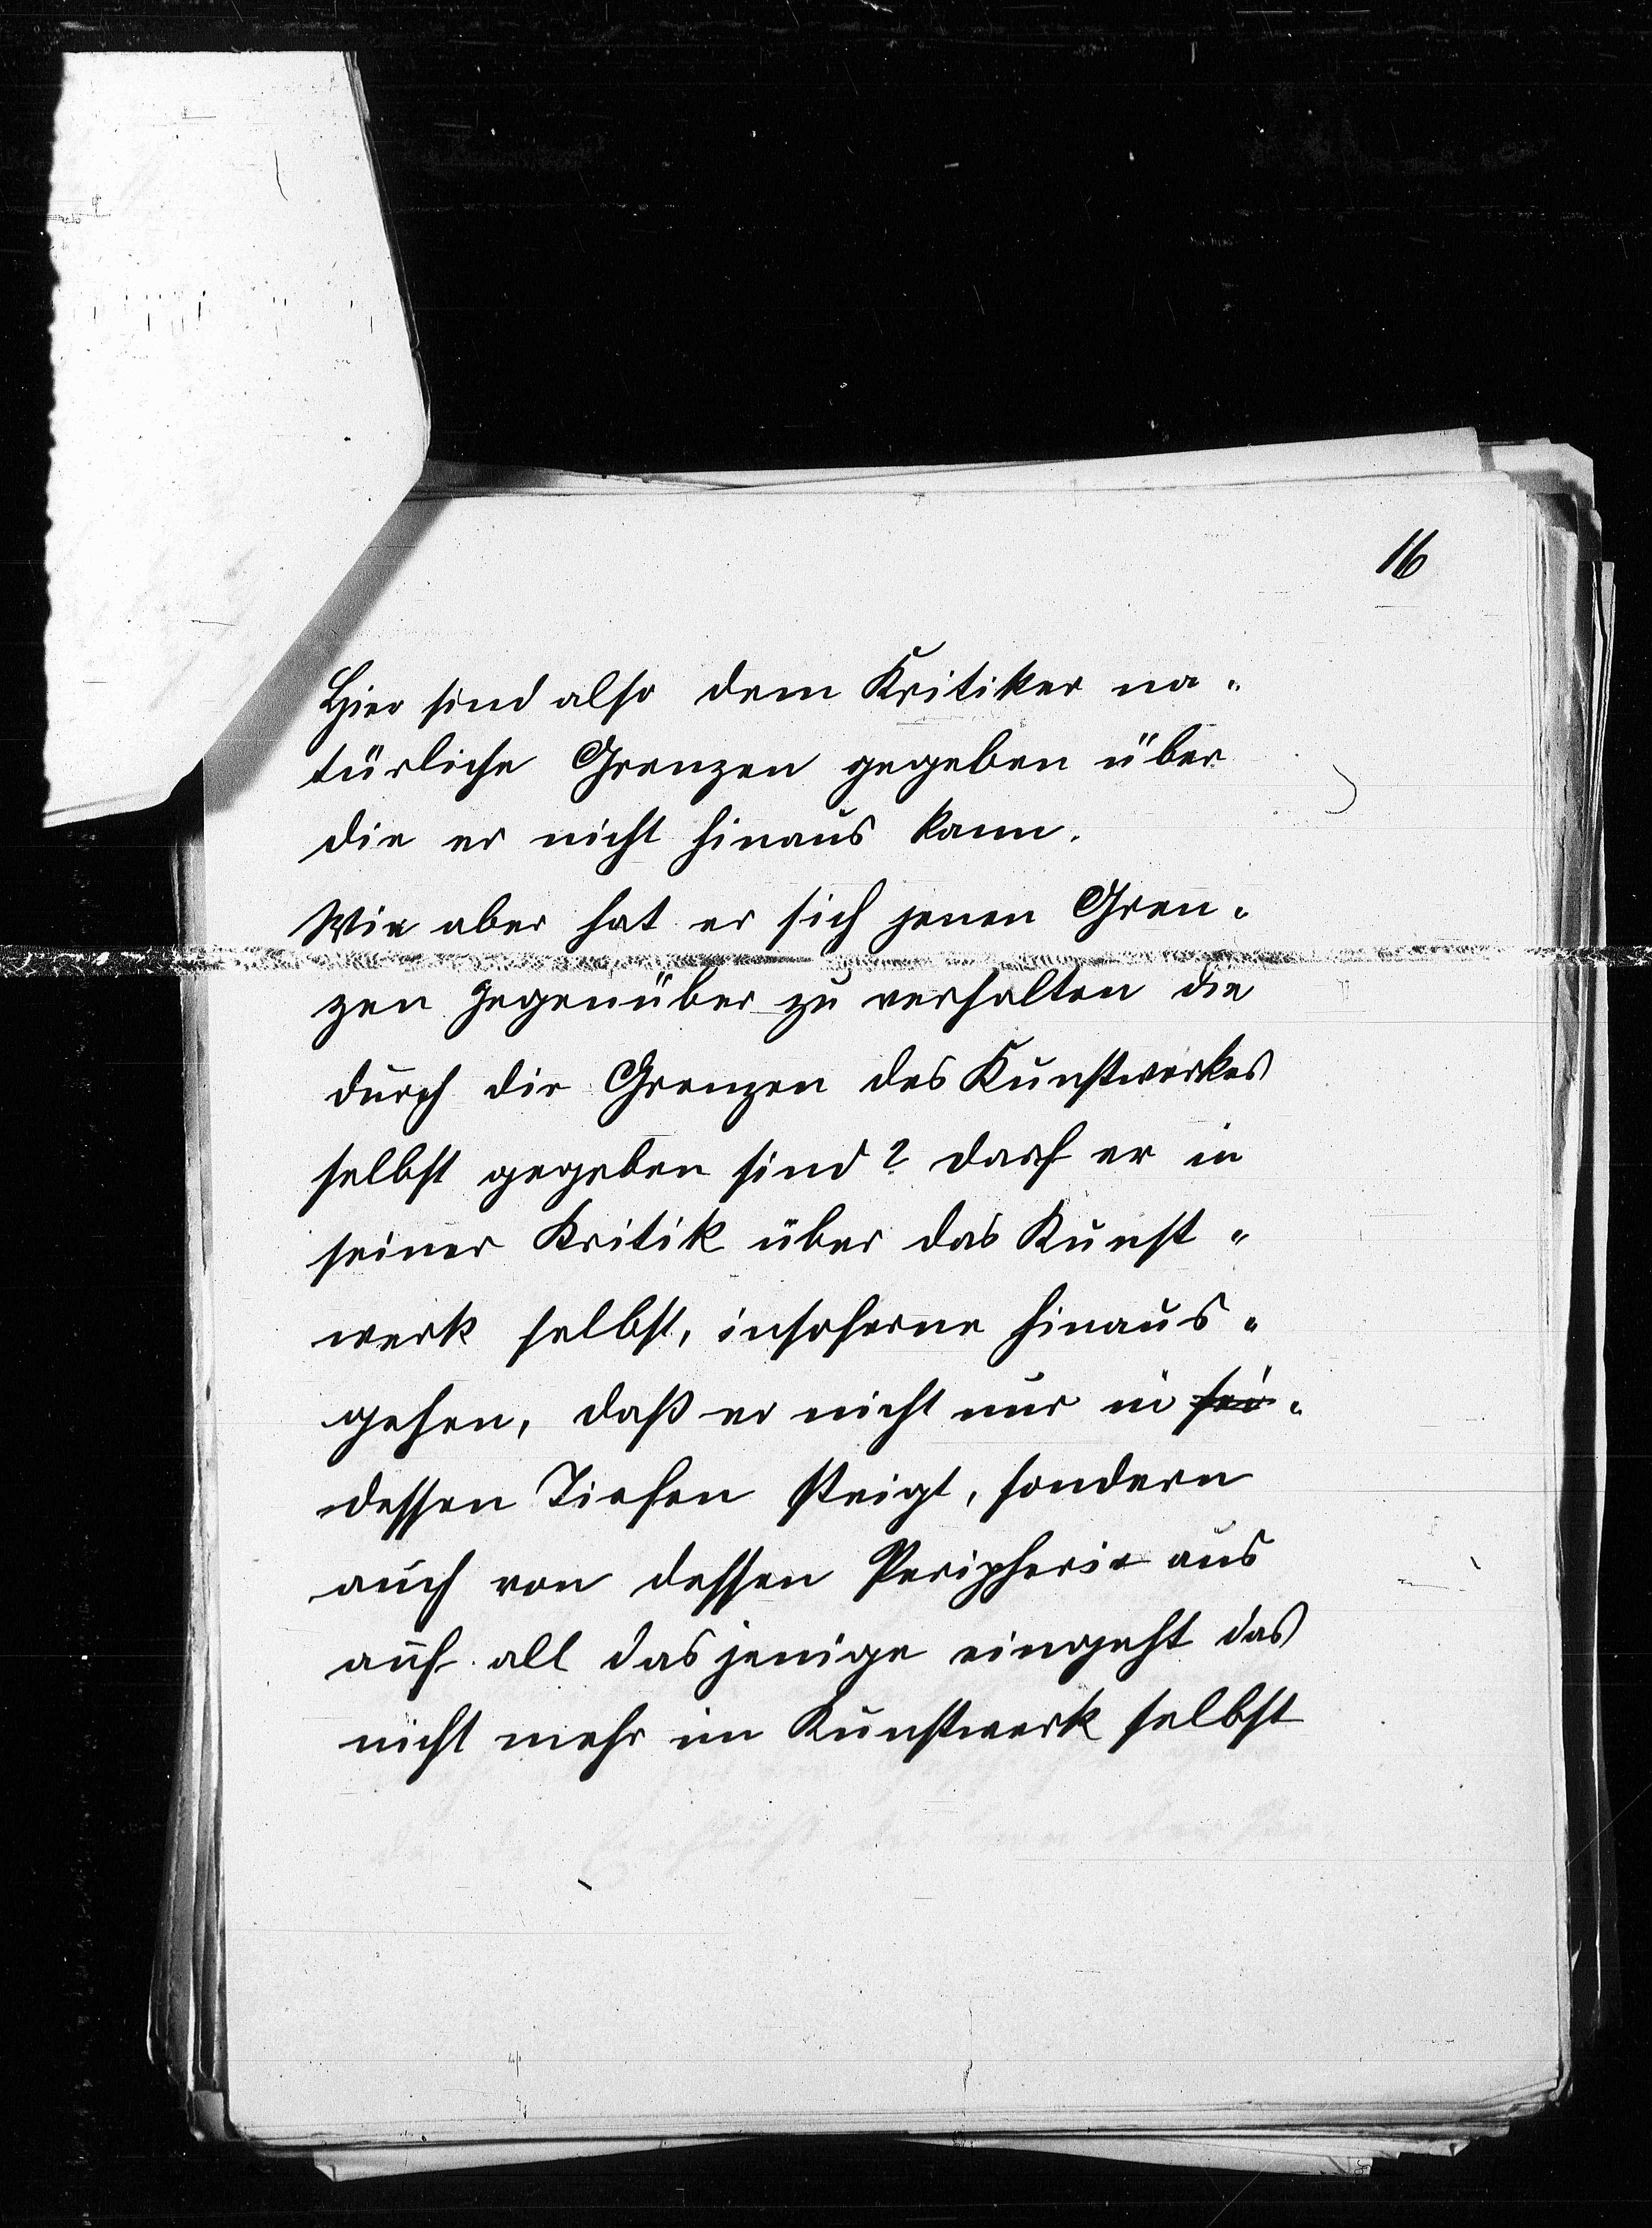 16
Hier sind also dem Kritiker na-
türliche Grenzen gegeben über
die er nicht hinaus kann.
Wie aber hat er sich jenen Gren-
zen gegenüber zu verhalten die
durch die Grenzen des Kunstwerkes
selbst gegeben sind? darf er in
seiner Kritik über das Kunst-
werk selbst, insoferne hinaus-
gehen, daß er nicht nur in sei-
dessen Tiefen steigt, sondern
auch von dessen Peripherie aus
auf all dasjenige eingeht das
nicht mehr im Kunstwerk selbst